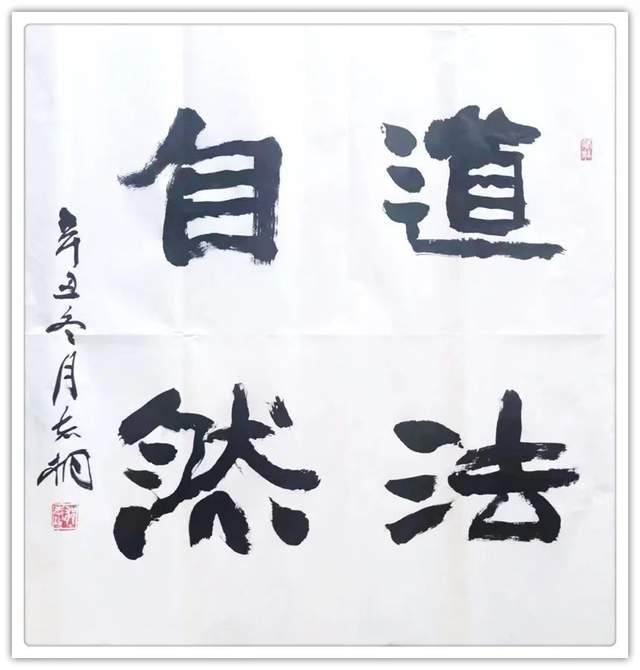 道法
自然
辛丑冬月志桐